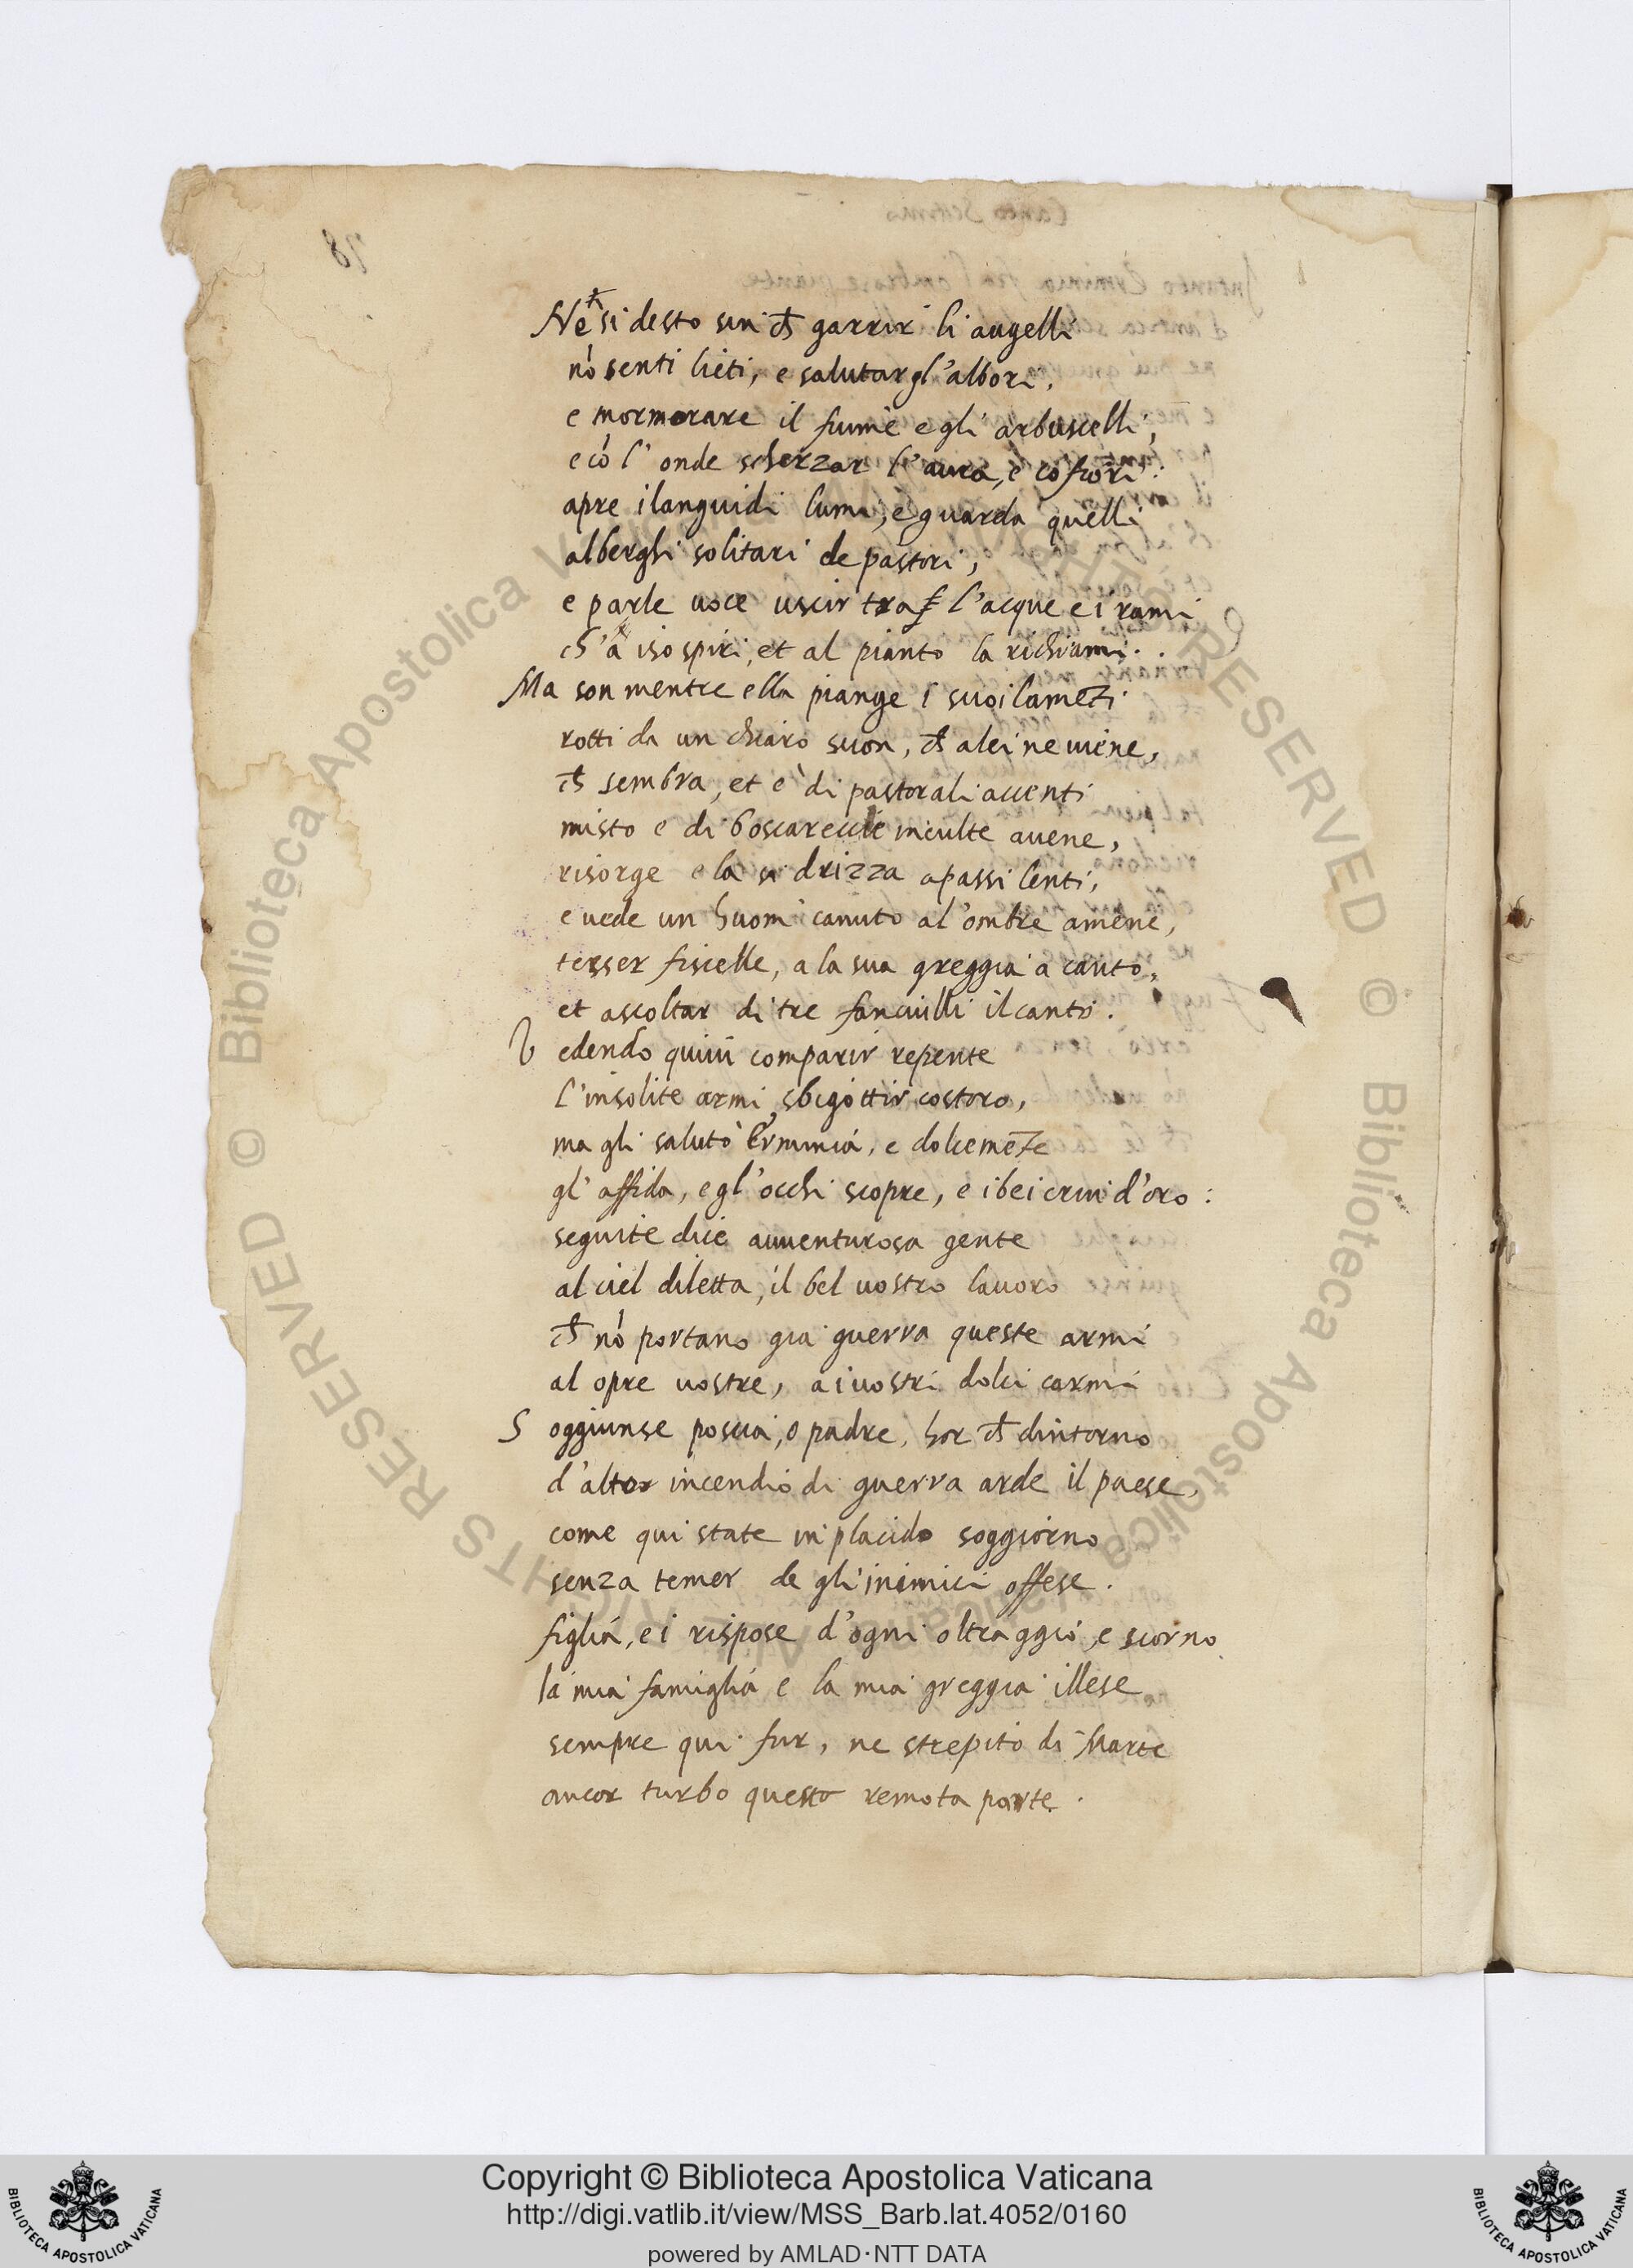 Ne si desto sin ch̄ garrir li augelli
nō senti lieti, e salutar gl'albori,
e mormorare il fiume e gli arbuscelli,
e cō l'onde scherzar l'aura, e cō fiori:
apre i languidi lumi, e guarda quelli
alberghi solitari de pastori,
e parle uoce uscir tra l'acque e i rami
ch'a i sospiri, et al pianto la richiami.
Ma son mentre ella piange i suoi lamēti
rotti da un chiaro suon, ch̄ a lei ne uiene,
ch̄ sembra, et e` di pastorali accenti
misto e di boscareccie inculte auene,
risorge e la si drizza a passi lenti,
e uede un huom canuto al'ombre amene,
tesser fiscelle, a la sua greggia a canto,
et ascoltar di tre fanciulli il canto.
Vedendo quiui comparir repente
l'insolite armi, sbigottir costoro,
ma gli salutò Erminia, e dolcemēte
gl'affida, e gl'occhi scopre, e i bei crin d'oro:
seguite dice auuenturosa gente
al ciel diletta, il bel uostro lauoro
ch̄ nō portano gia guerra queste armi
al opre uostre, a i uostri dolci carmi
Soggiunse poscia, o padre, hor ch̄ d'intorno
d'alto incendio di guerra arde il paese,
come qui state in placido soggiorno
senza temer de gli inimici offese.
figlia, ei rispose d'ogni oltraggio, e scorno
la mia famiglia e la mia greggia illese
sempre qui fur, ne strepito di Marte
ancor turbo questa remota parte.
78
RIGHTS RESERVED © Biblioteca Apostolica Vaticana ALL RIGHTS RESERVED © Biblioteca Apostolica Vaticana ALL
Copyright © Biblioteca Apostolica Vaticana
http://digi.vatlib.it/view/MSS_Barb.lat.4052/0160
powered by AMLAD·NTT DATA
BIBLIOTECA APOSTOLICA VATICANA
BIBLIOTECA APOSTOLICA VATICANA